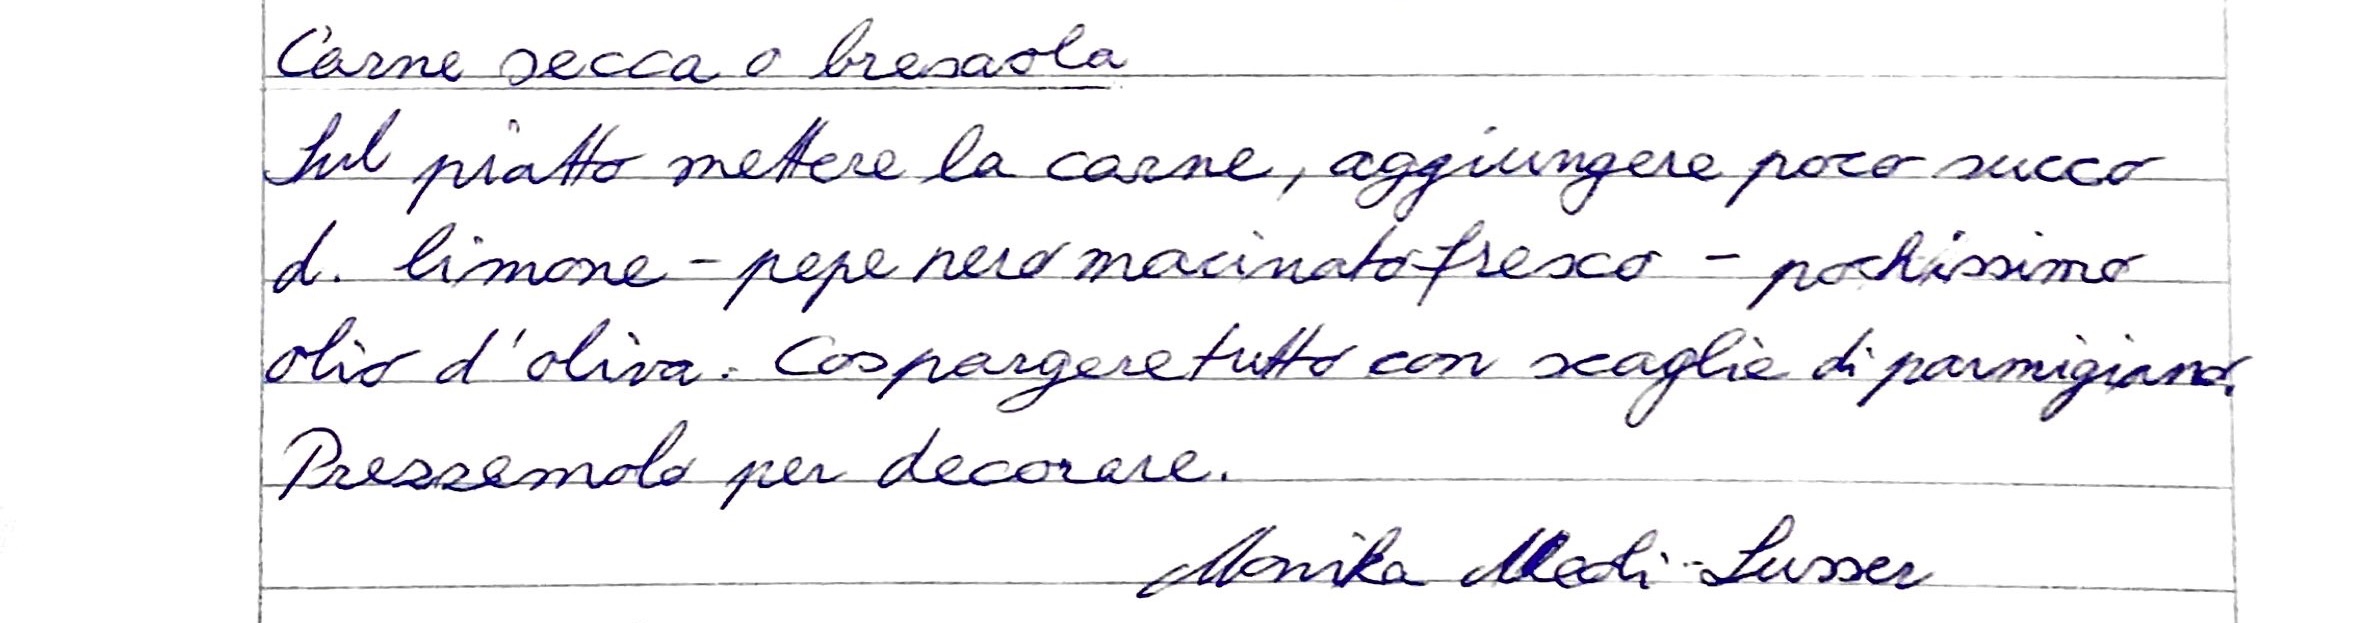 Carne secca o bresaola
Sul piatto mettere la carne, aggiungere poco succo
d. limone - pepe nero macinato fresco - pochissimo
olio d'oliva. Cospargere tutto con scaglie di parmigiano.
Prezzemolo per decorare.
Monika